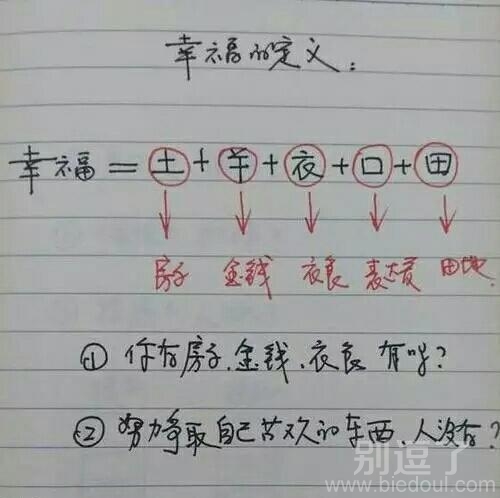 幸福的定义:
幸福=土+羊+衣+口+田
房子 金钱 衣食 表达 田地
① 你有房子、金钱、衣食 有吗?
② 努力争取自己喜欢的东西、人没有?
别逗了
www.biedoul.com